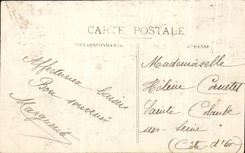 CARTE POSTALE
CORRESPONDANCE
ADRESSE
Affectueux baisers
Bon souvenir
Marguerite
Mademoiselle
Hélène
Sainte Colombe
sur Seine
(Côte d'Or)